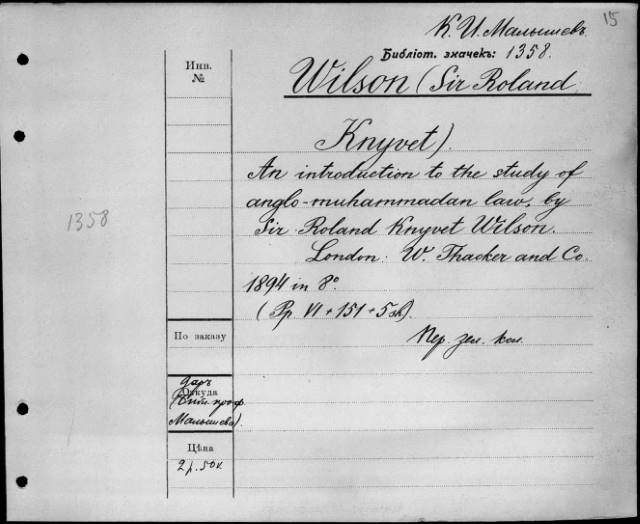 15
К. И. Малышевъ.
Библіот. значекъ: 1358.
Инв.
№
Wilson (Sir Roland
Knyvet).
An introduction to the study of
anglo-muhammadan law, by
Sir Roland Knyvet Wilson.
1358
London: W. Thacker and Co.
1894 in 8°.
(Pp. VI + 151 + 5 ).
По заказу
Пер. зел. кол.
даръ
Откуда
(Библ. проф.
Малышева).
Цѣна
2 р. 50 к.